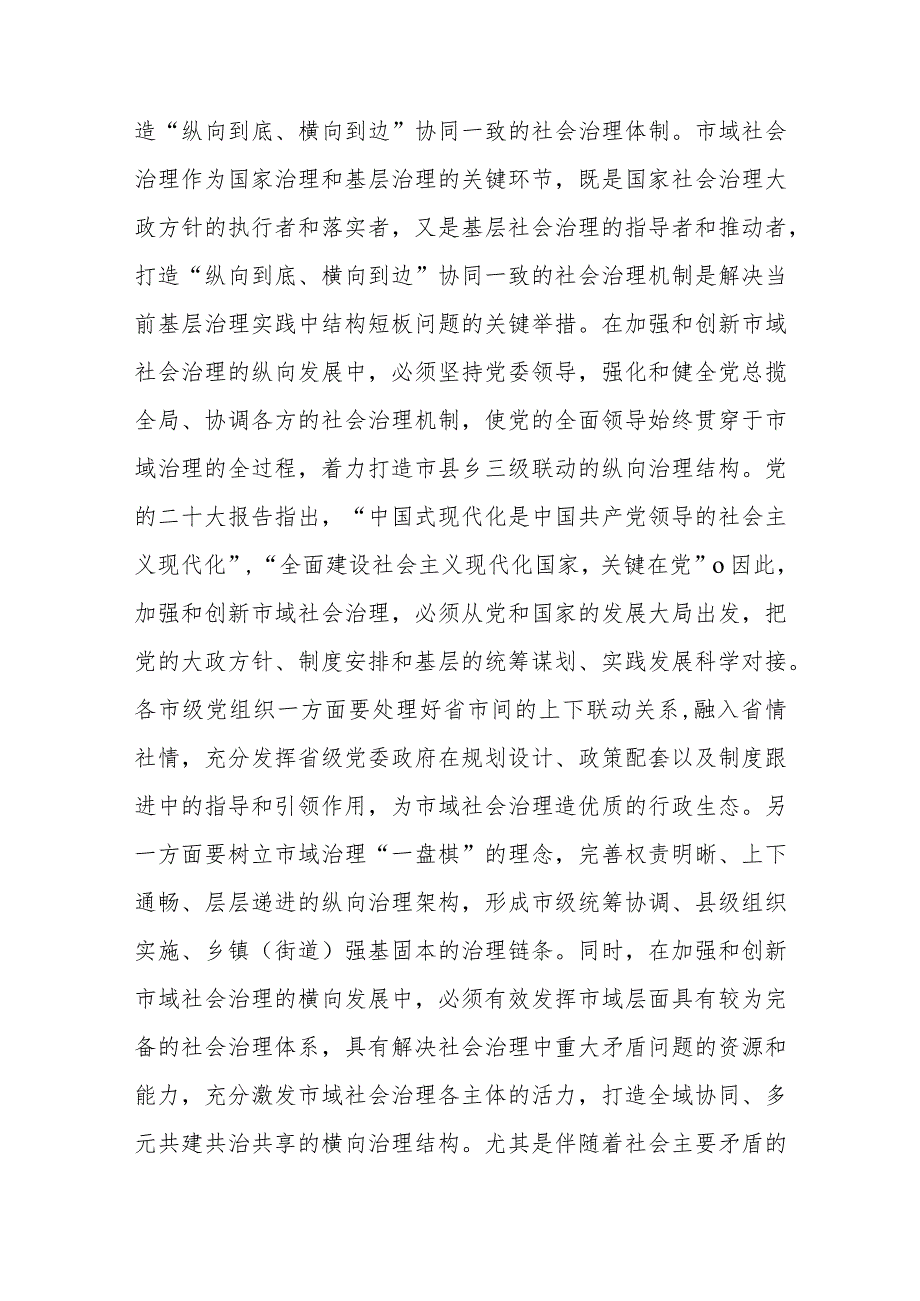 造“纵向到底、横向到边”协同一致的社会治理体制。市域社会
治理作为国家治理和基层治理的关键环节，既是国家社会治理大
政方针的执行者和落实者，又是基层社会治理的指导者和推动者，
打造“纵向到底、横向到边”协同一致的社会治理机制是解决当
前基层治理实践中结构短板问题的关键举措。在加强和创新市域
社会治理的纵向发展中，必须坚持党委领导，强化和健全党总揽
全局、协调各方的社会治理机制，使党的全面领导始终贯穿于市
域治理的全过程，着力打造市县乡三级联动的纵向治理结构。党
的二十大报告指出，“中国式现代化是中国共产党领导的社会主
义现代化”,“全面建设社会主义现代化国家，关键在党”o因此，
加强和创新市域社会治理，必须从党和国家的发展大局出发，把
党的大政方针、制度安排和基层的统筹谋划、实践发展科学对接。
各市级党组织一方面要处理好省市间的上下联动关系,融入省情
社情，充分发挥省级党委政府在规划设计、政策配套以及制度跟
进中的指导和引领作用，为市域社会治理造优质的行政生态。另
一方面要树立市域治理“一盘棋”的理念，完善权责明晰、上下
通畅、层层递进的纵向治理架构，形成市级统筹协调、县级组织
实施、乡镇（街道）强基固本的治理链条。同时，在加强和创新
市域社会治理的横向发展中，必须有效发挥市域层面具有较为完
备的社会治理体系，具有解决社会治理中重大矛盾问题的资源和
能力，充分激发市域社会治理各主体的活力，打造全域协同、多
元共建共治共享的横向治理结构。尤其是伴随着社会主要矛盾的